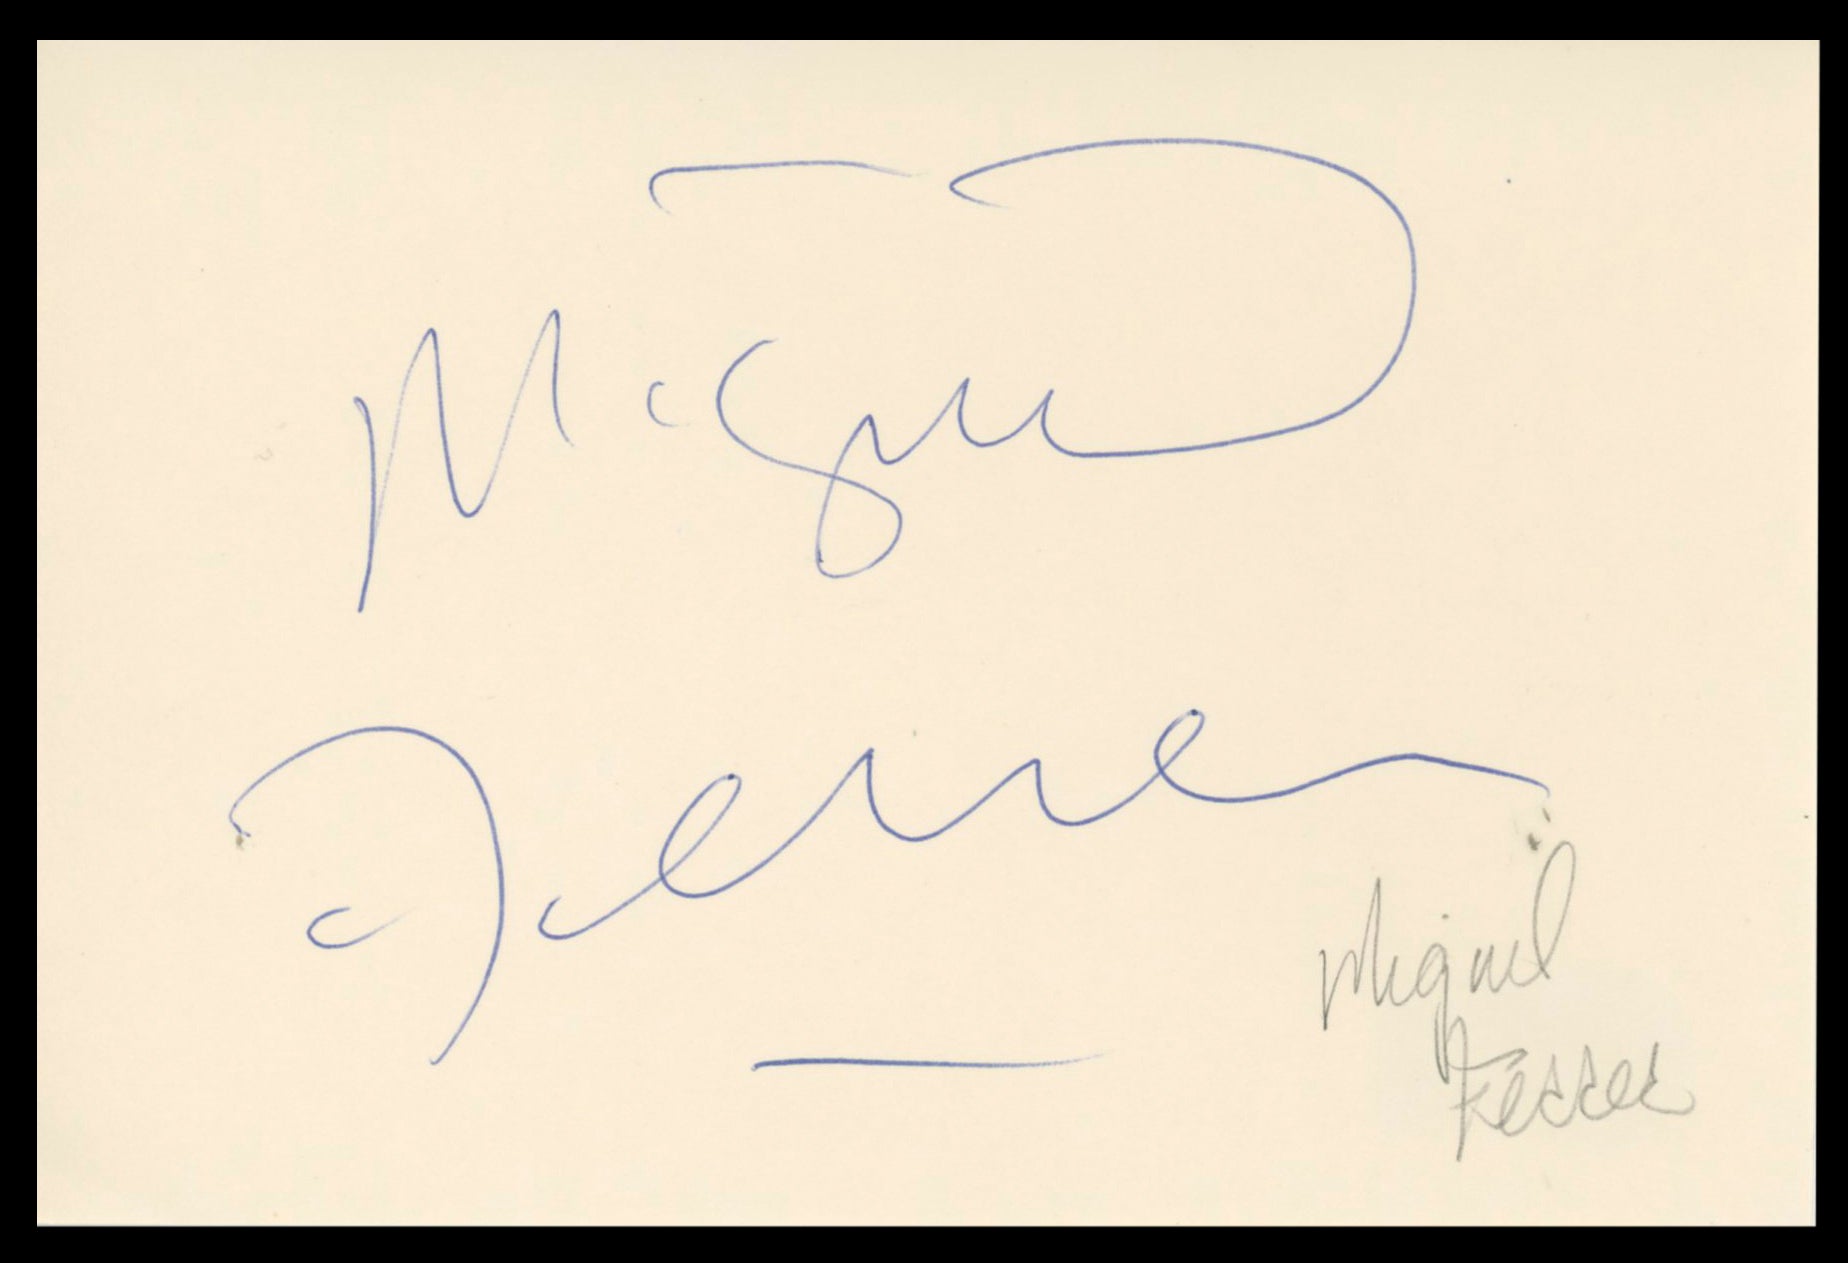 Miguel
Ferrer
Miguel
Ferrer